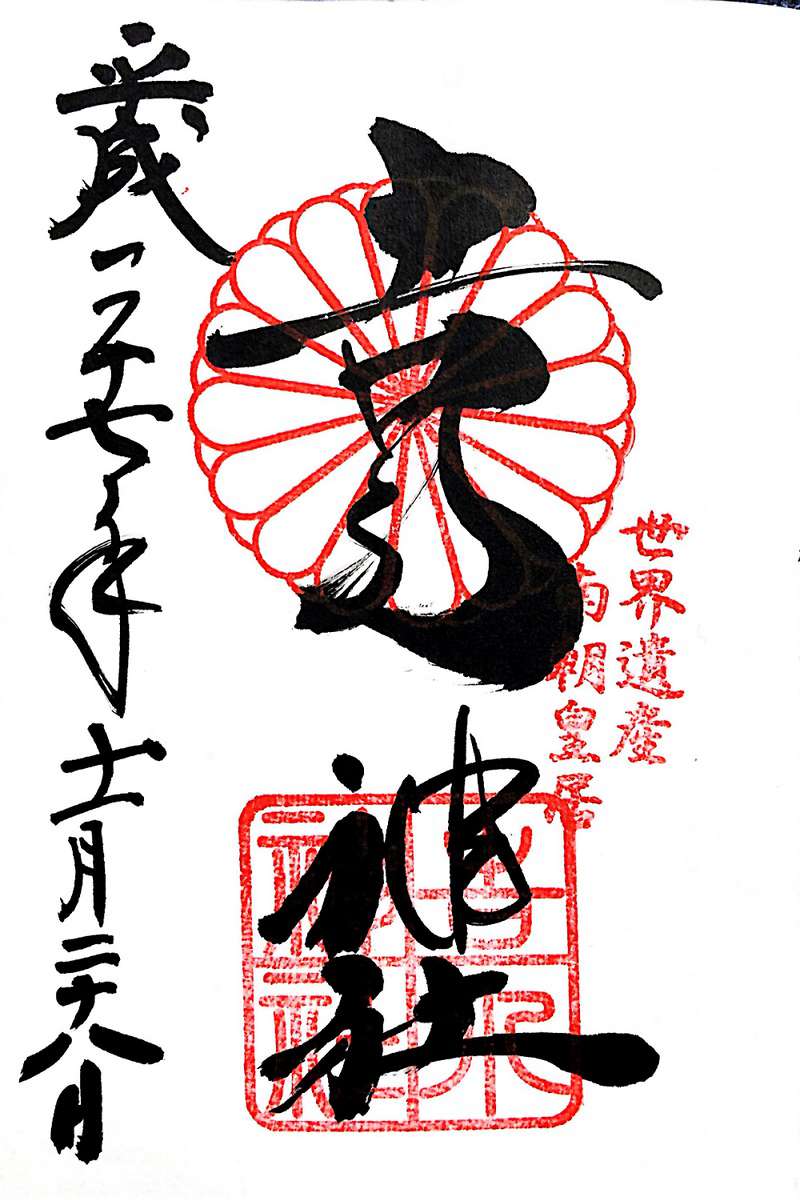 世界遺産
南朝皇居
吉水神社
吉水神社
平成二十七年十一月二十八日